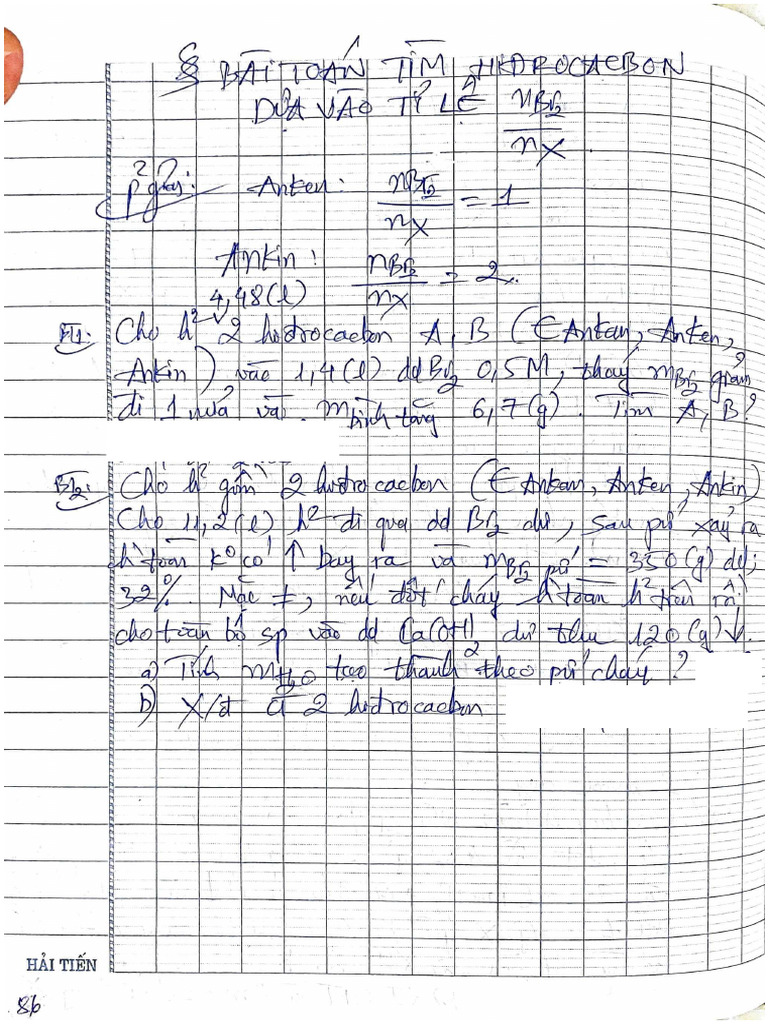 § BÀI TOÁN TÌM HIDROCACBON
DỰA VÀO TỶ LỆ nBr2/nX
p² giải: Anken: nBr2/nX = 1
Ankin: nBr2/nX = 2.
4,48(l)
BT1: Cho h² 2 hidrocacbon A, B (∈ Ankan, Anken,
Ankin) vào 1,4(l) dd Br2 0,5M, thấy mBr2 giảm
đi 1 nửa và mbình tăng 6,7(g). Tìm A, B?
BT2: Cho h² gồm 2 hidrocacbon (∈ Ankan, Anken, Ankin)
Cho 11,2(l) h² đi qua dd Br2 dư, sau pứ xảy ra
h toàn ko có ↑ bay ra và mBr2 pứ = 350(g) dd;
32%. Mặc ≠, nếu đốt cháy h toàn h² trên rồi
cho toàn bộ sp vào dd Ca(OH)2 dư thu 120(g)↓.
a) Tính mH2O tạo thành theo pứ cháy?
b) X/đ 2 hidrocacbon
HẢI TIẾN
86